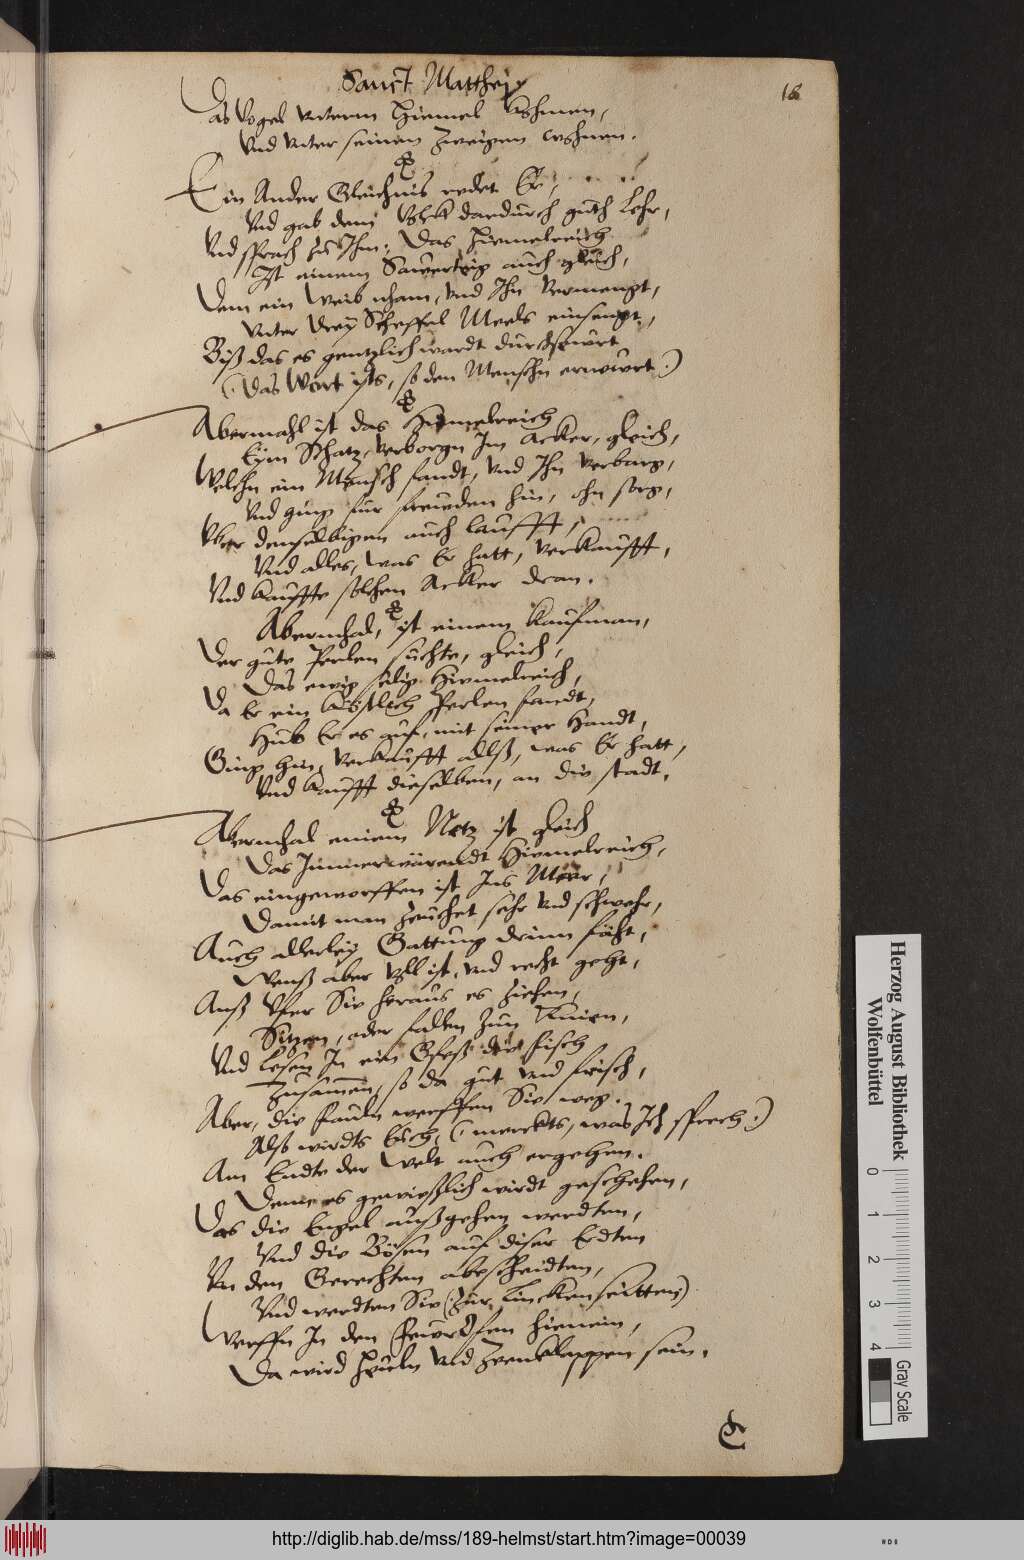 Sanct Matthej
16
Das Vogel vnterm Himmel kohmen,
Vnd vnter seinen Zweigen wohnen.
Ein Ander Gleichnis redet Er,
Vnd gab dem Volck dardurch guth Lehr,
Vnd sprach zu Ihm: Das Himmelreich
Ist einem Sawerteig auch gleich,
Dem ein Weib nham, vnd Ihn vermengt,
Vnter drey Scheffel Meels einsengt,
Biß das es gentzlich wardt durchseurt
(: Das Wort ists, so den Menschn ernewrt :)
Abermahl ist das Himmelreich
Eym Schatz, verborgn Im Acker, gleich,
Welchn ein Mensch fandt, vnd Ihn verbarg,
Vnd ging fur freuden hin, ohn sorg,
Vber denselbigen auch laufft,
Vnd alles, was Er hatt, verkaufft,
Vnd kauffte solchen Acker dran.
Abermhal, ist einem Kaufman,
Der gute Perlen suchte, gleich,
Das ewig selig Himmelreich,
Da Er ein köstlich Perlen fandt,
Hub Er es auf, mit seiner Handt,
Ging hin, verkaufft allß, was Er hatt,
Vnd kaufft dieselben, an die stadt.
Abermhal einem Netz ist gleich
Das Immerwärendt Himmelreich,
Das eingeworffen ist Ins Meer,
Damit man zeuchet sehr vnd schwehr,
Auch allerley Gattung drinn fäht,
Wenß aber Voll ist, vnd recht geht,
Anß Vfer Sie heraus es ziehen,
Sitzen, oder fallen zun Knien,
Vnd lesen In ein Gfeß die fisch
Zusammen, so da gut vnd frisch,
Aber, die fauln werffen Sie weg.
Alß wirdts Euch, (: merckts, was Ich sprech :)
Am Endte der Welt auch ergehen.
Denn es gewießlich wirdt geschehen,
Das die Engel außgehen werdten,
Vnd die Bösen auf diser Erdten
Vn den Gerechten abescheidten,
Vnd werdten Sie (: Zur Lincken seitten :)
Werffn In den Fewr Ofen hienein,
Da wird Heuln vnd Zeenklappen sein.
C
Herzog August Bibliothek
Wolfenbüttel
0 1 2 3 4
Gray Scale
http://diglib.hab.de/mss/189-helmst/start.htm?image=00039